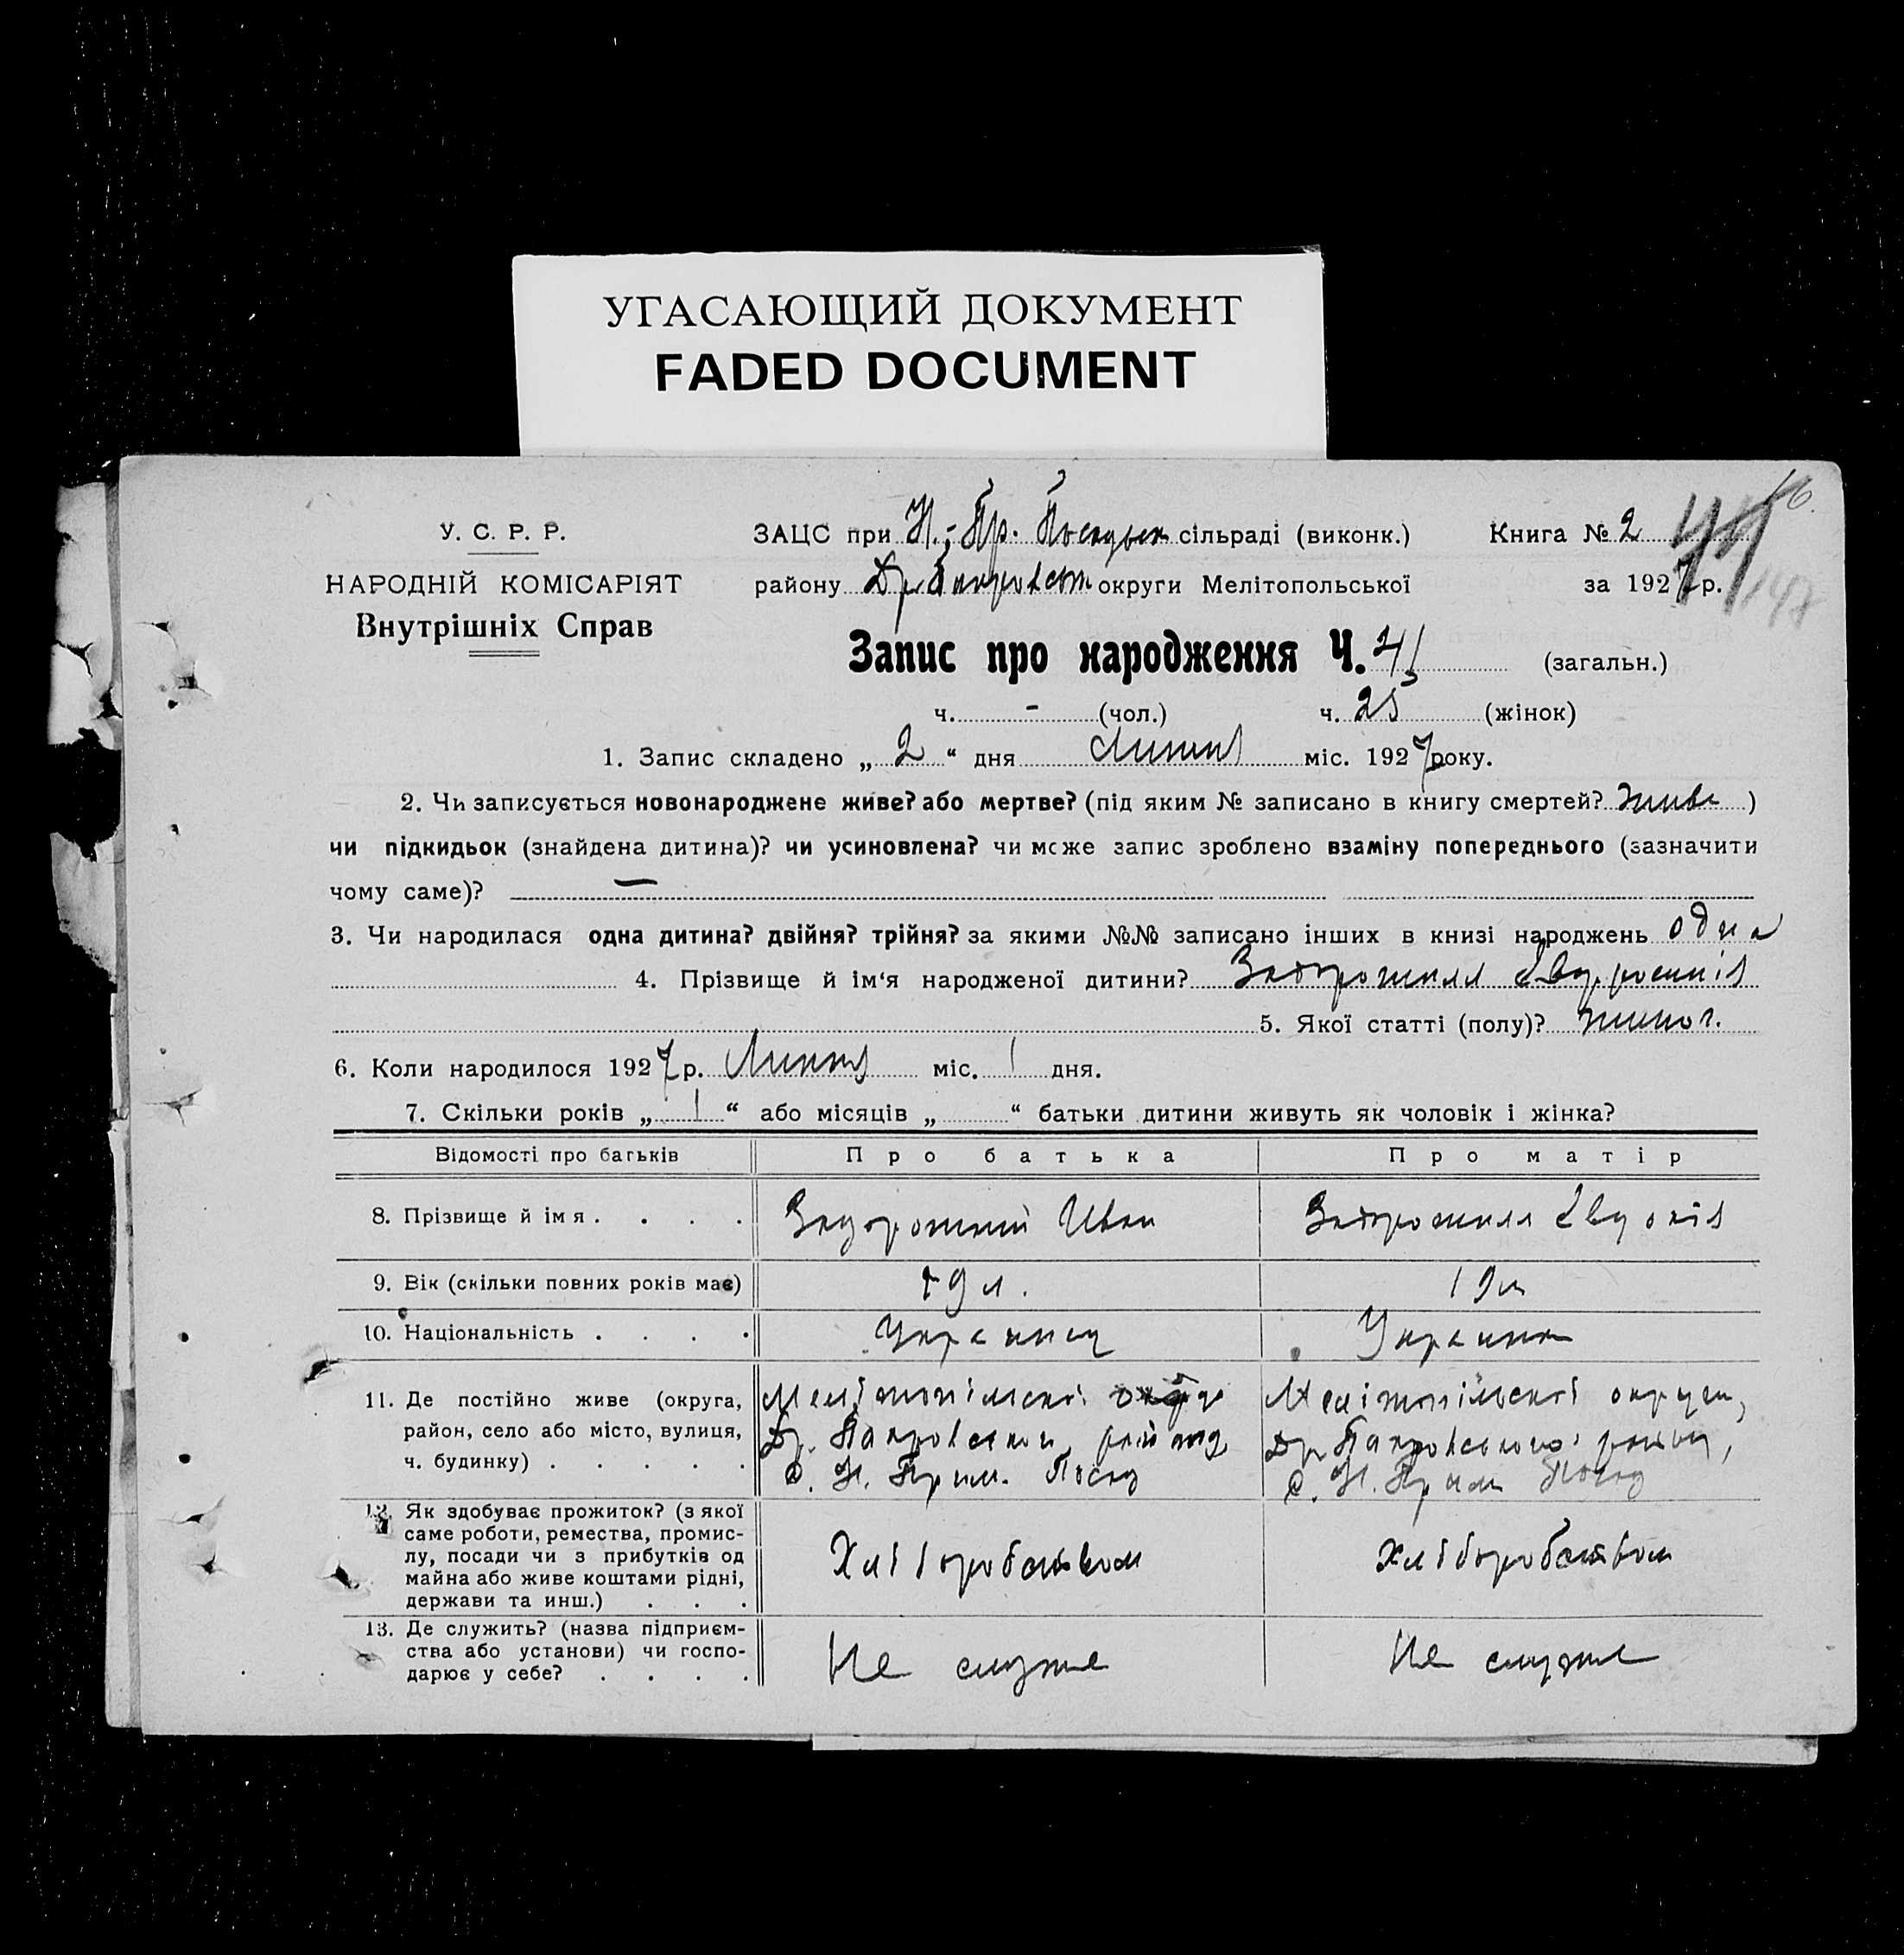 УГАСАЮЩИЙ ДОКУМЕНТ
FADED DOCUMENT
16.
У. С. Р. Р.
НАРОДНІЙ КОМІСАРІЯТ
Внутрішніх Справ
ЗАЦС при Н.-Пр. сільраді (виконк.) Книга № 2
району округи Мелітопольської за 1927 р.
147
Запис про народження Ч. 41 (загальн.)
ч. - (чол.) ч. 25 (жінок)
1. Запис складено „ 2 “ дня Липня міс. 1927 року.
2. Чи записується новонароджене живе? або мертве? (під яким № записано в книгу смертей? живе )
чи підкидьок (знайдена дитина)? чи усиновлена? чи може запис зроблено взаміну попереднього (зазначити
чому саме)? —
3. Чи народилася одна дитина? двійня? трійня? за якими №№ записано інших в книзі народжень одна
4. Прізвище й ім‘я народженої дитини? Задорожняя
5. Якої статті (полу)? жіноч.
6. Коли народилося 1927 р. Липня міс. 1 дня.
7. Скільки років „ 1 “ або місяців „ “ батьки дитини живуть як чоловік і жінка?
Відомості про батьків Про батька Про матір
8. Прізвище й імя . . . . Задорожний Иван Задорожняя Евдокія
9. Вік (скільки повних років має) 19 л. 19 л
10. Національність . . . . Украинец Украинка
11. Де постійно живе (округа, Мелітопільскоі Мелітопільскоі округи,
район, село або місто, вулиця, району
ч. будинку) . . . . . с. Н. Прим. Посад с. Н. Прим Посад
12. Як здобуває прожиток? (з якої
саме роботи, ремества, промис-
лу, посади чи з прибутків од Хліборобством Хліборобством
майна або живе коштами рідні,
держави та инш.) . . .
13. Де служить? (назва підприєм-
ства або установи) чи госпо- Не служе Не служе
дарює у себе? . . . .